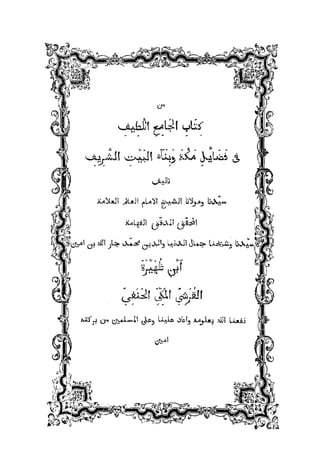 من
كتاب الجامع اللطيف
في فضايل مكة وبناء البيت الشريف
تاليف
سيدنا ومولانا الشيخ الامام العالم العلامة
المحقق المدقق الفهامة
سيدنا وشيخنا جمال الدنيا والدين محمد جار الله بن امين
ابن ظهيرة
القرشي المكي الحنفي
نفعنا الله بعلومه واعاد علينا وعلى المسلمين من بركته
امين